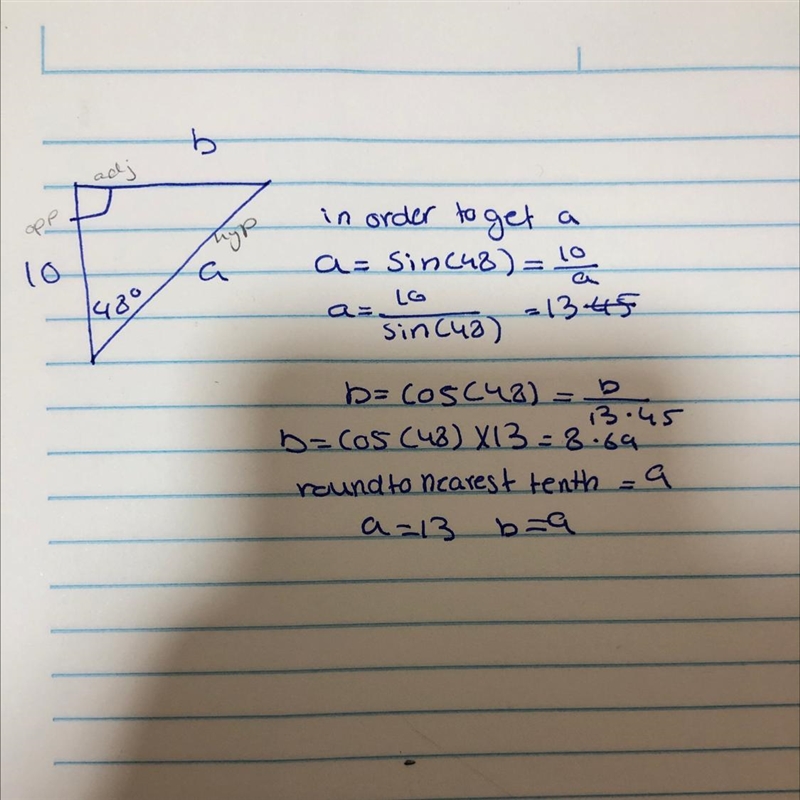 b
adj
opp
hyp
10
a
48°
in order to get a
a = sin(48) = 10/a
a = 10/sin(48) = 13.45
b = cos(48) = b/13.45
b = cos(48) × 13 = 8.69
round to nearest tenth = 9
a = 13 b = 9